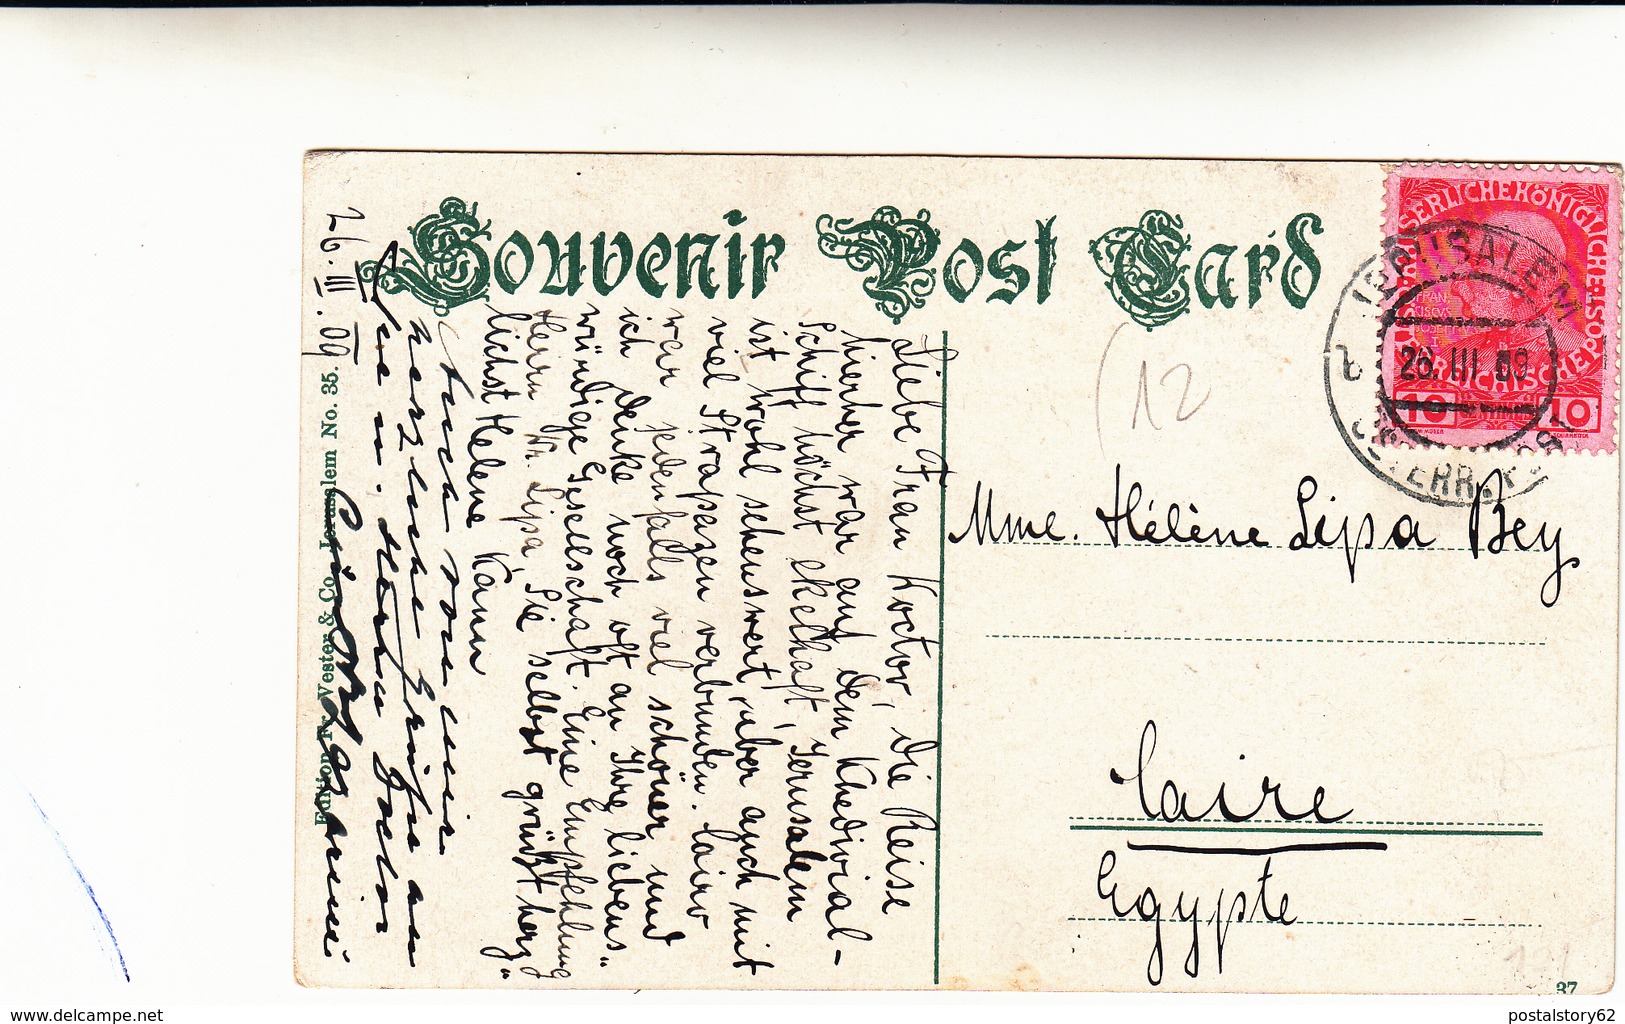 Souvenir Post Card
Liebe Frau Doctor, die Reise
hierher war auf dem Khedivial-
Schiff höchst ekelhaft, Jerusalem
ist wohl sehenswert, aber auch mit
viel Strapazen verbunden. Cairo
war jedenfalls viel schöner und
ich denke noch oft an Ihre liebens"
würdige Gesellschaft. Eine Empfehlung
Herrn Dr. Lipa, Sie selbst grüßt herz"
lichst Helene Kann
Auch von mir
herzliche Grüße an
Sie u. Herrn Doctor
26.III.09
Edition F. Vester & Co. Jerusalem No. 35.
Mme. Hélène Lipa Bey
Caire
Egypte
(12
KAISERLICHEKÖNIGLICHE
ÖSTERREICHISCHE POST
FRAN
CISCVS
JOSEPH
I
10 CENTIMES 10
JERUSALEM
26.III 09
ÖSTERR. POST
37
delcampe.net
postalstory62